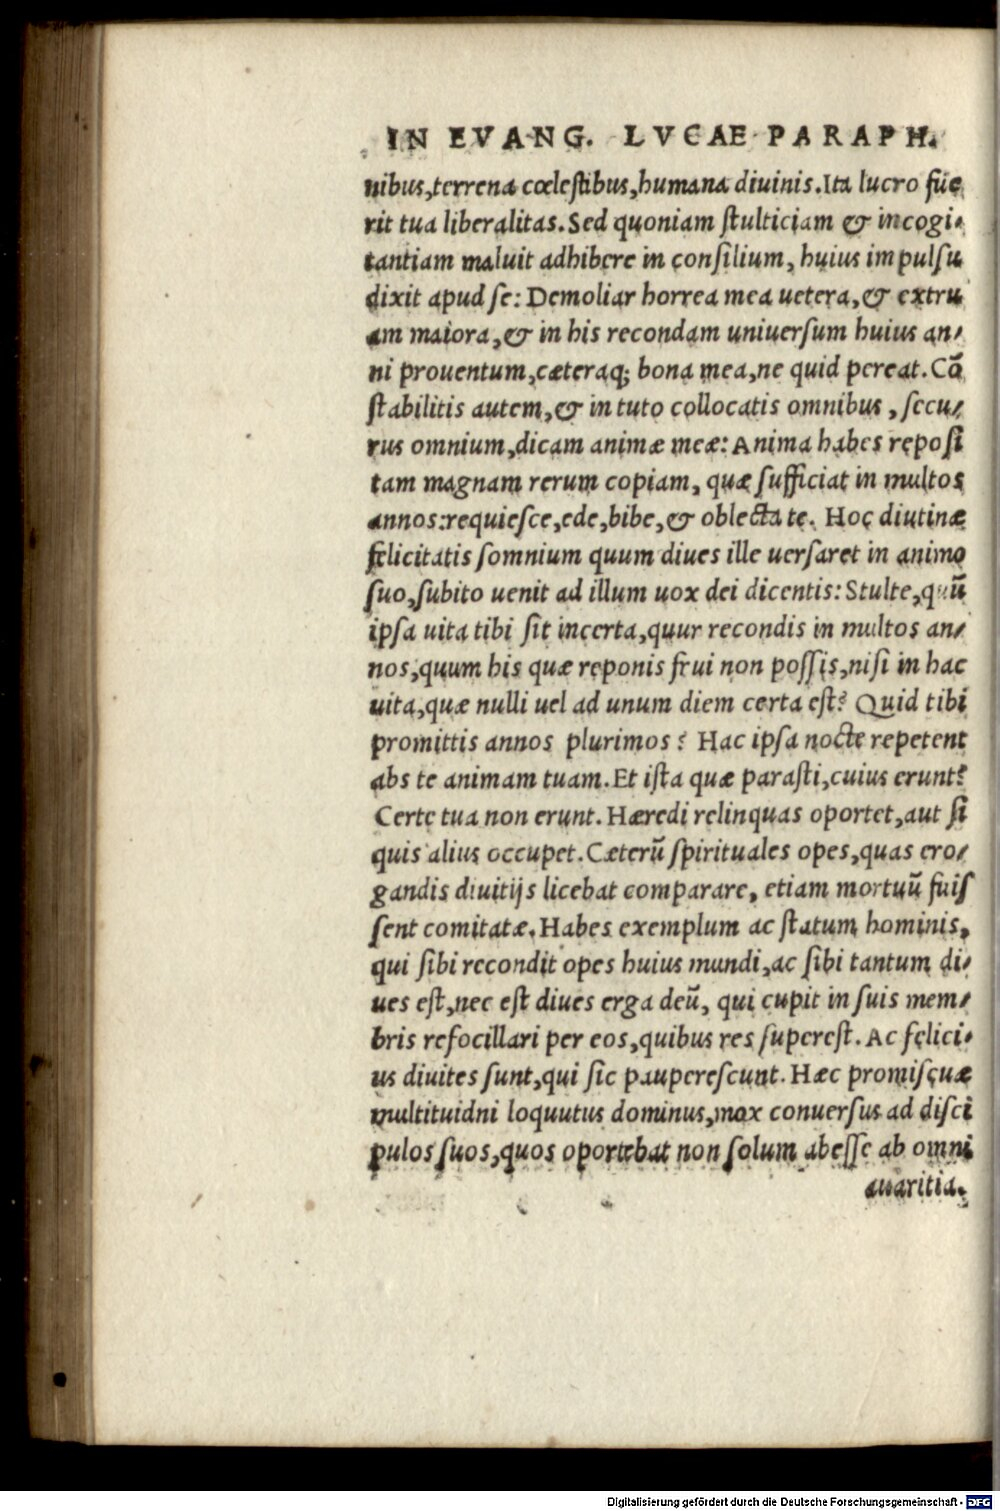 IN EVANG. LVCAE PARAPH.
nibus,terrena cœlestibus,humana diuinis.Ita lucro fue
rit tua liberalitas.Sed quoniam stulticiam & incogi-
tantiam maluit adhibere in consilium, huius impulsu
dixit apud se: Demoliar horrea mea uetera,& extru
am maiora,& in his recondam uniuersum huius an-
ni prouentum,cæteraq; bona mea,ne quid pereat.Cō
stabilitis autem,& in tuto collocatis omnibus, secu-
rus omnium,dicam animæ meæ: Anima habes reposi
tam magnam rerum copiam, quæ sufficiat in multos
annos:requiesce,ede,bibe,& oblecta te. Hoc diutinæ
felicitatis somnium quum diues ille uersaret in animo
suo,subito uenit ad illum uox dei dicentis: Stulte,quū
ipsa uita tibi sit incerta,quur recondis in multos an-
nos,quum his quæ reponis frui non possis,nisi in hac
uita,quæ nulli uel ad unum diem certa est? Quid tibi
promittis annos plurimos? Hac ipsa nocte repetent
abs te animam tuam.Et ista quæ parasti,cuius erunt?
Certe tua non erunt. Hæredi relinquas oportet,aut si
quis alius occupet. Cæterū spirituales opes,quas ero-
gandis diuitijs licebat comparare, etiam mortuū fuis
sent comitatæ. Habes exemplum ac statum hominis,
qui sibi recondit opes huius mundi,ac sibi tantum di-
ues est,nec est diues erga deū, qui cupit in suis mem-
bris refocillari per eos,quibus res superest. Ac felici-
us diuites sunt,qui sic pauperescunt. Hæc promiscuæ
multituidni loquutus dominus,mox conuersus ad disci
pulos suos,quos oportebat non solum abesse ab omni
auaritia.
Digitalisierung gefördert durch die Deutsche Forschungsgemeinschaft - DFG